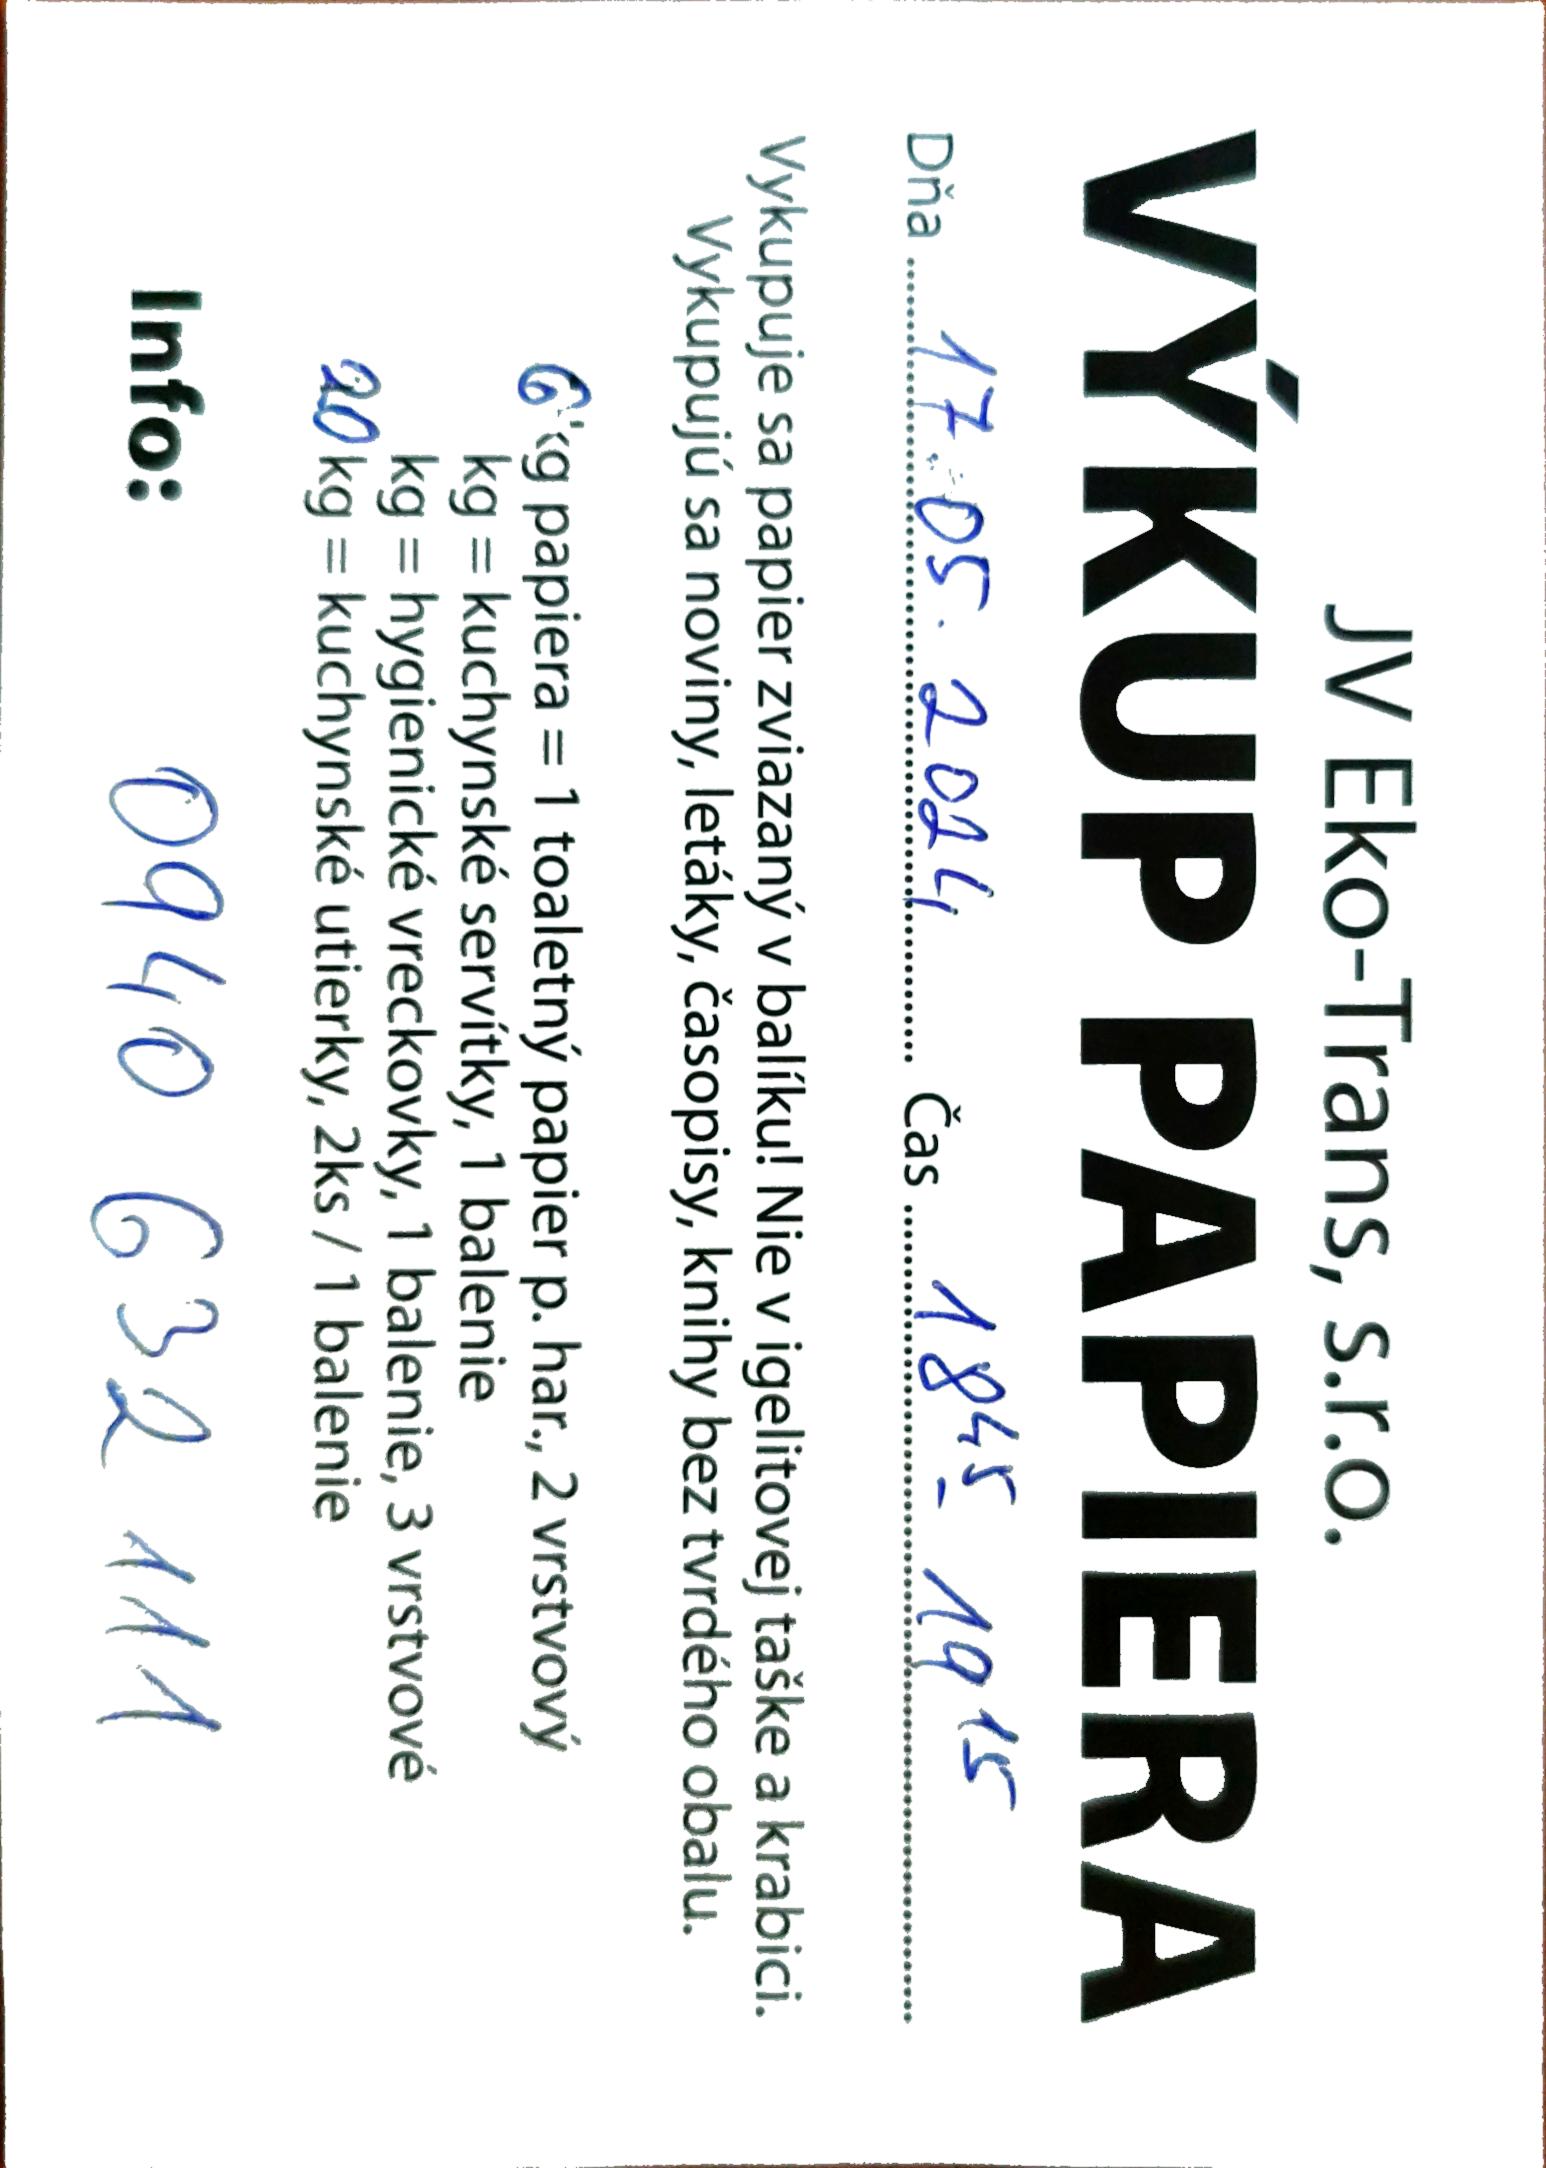 JV Eko-Trans, s.r.o.
VÝKUP PAPIERA
Dňa 17.05.2024 Čas 18 45 - 19 15
Vykupuje sa papier zviazaný v balíku! Nie v igelitovej taške a krabici.
Vykupujú sa noviny, letáky, časopisy, knihy bez tvrdého obalu.
6 kg papiera = 1 toaletný papier p. har., 2 vrstvový
kg = kuchynské servítky, 1 balenie
kg = hygienické vreckovky, 1 balenie, 3 vrstvové
20 kg = kuchynské utierky, 2ks / 1 balenie
Info: 0940 632 111